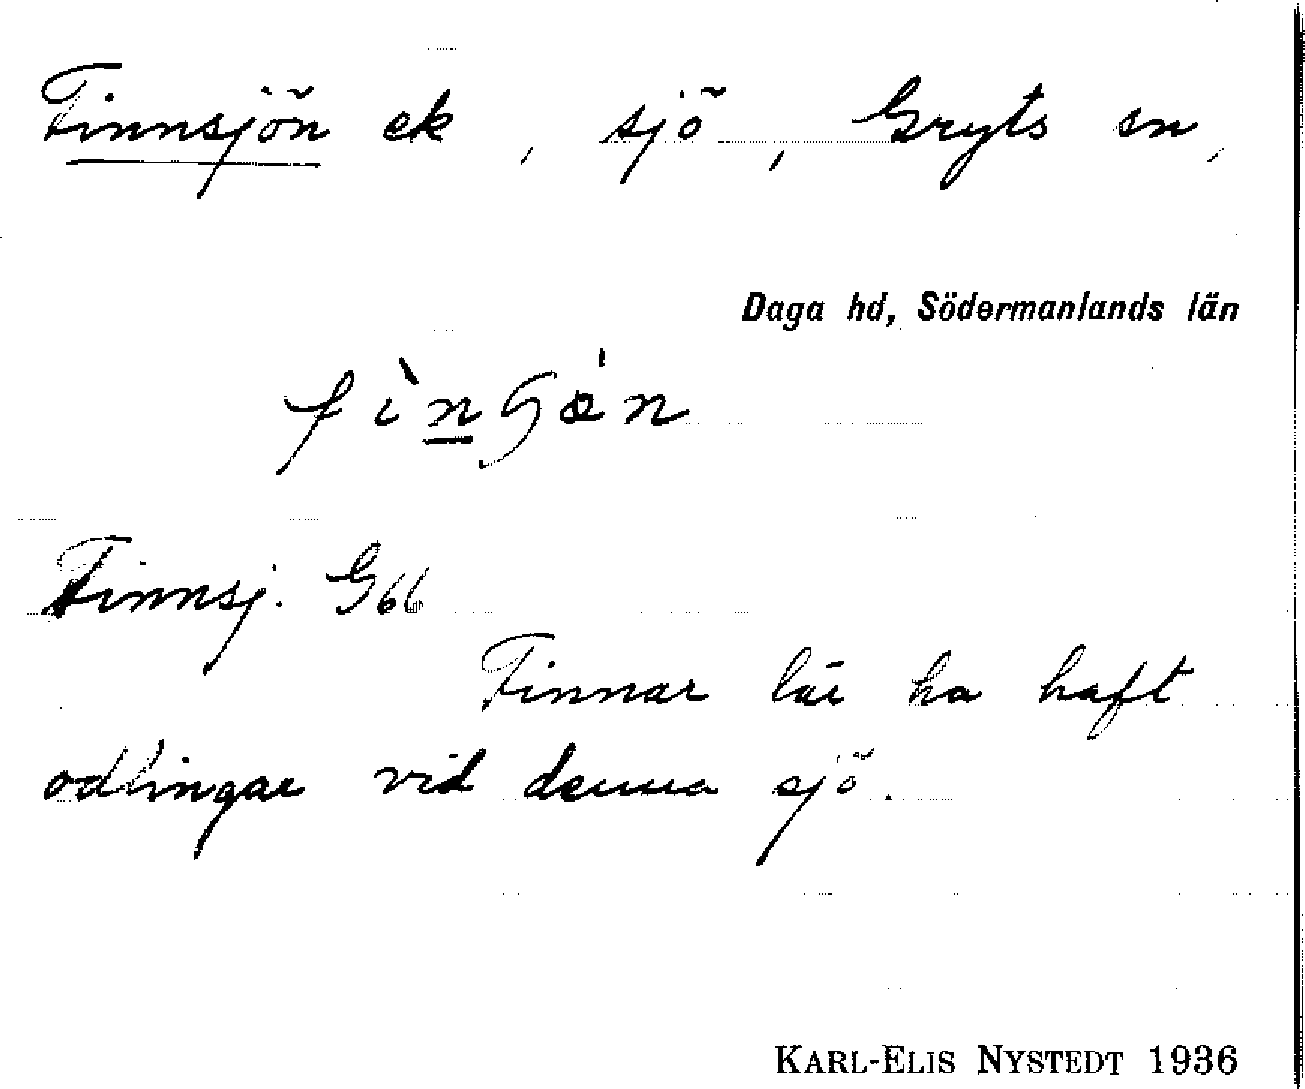 Finnsjön ek, sjö, Gryts sn,
Daga hd, Södermanlands län
Finnsj. G66
Finnar lär ha haft
odlingar vid denna sjö.
KARL-ELIS NYSTEDT 1936